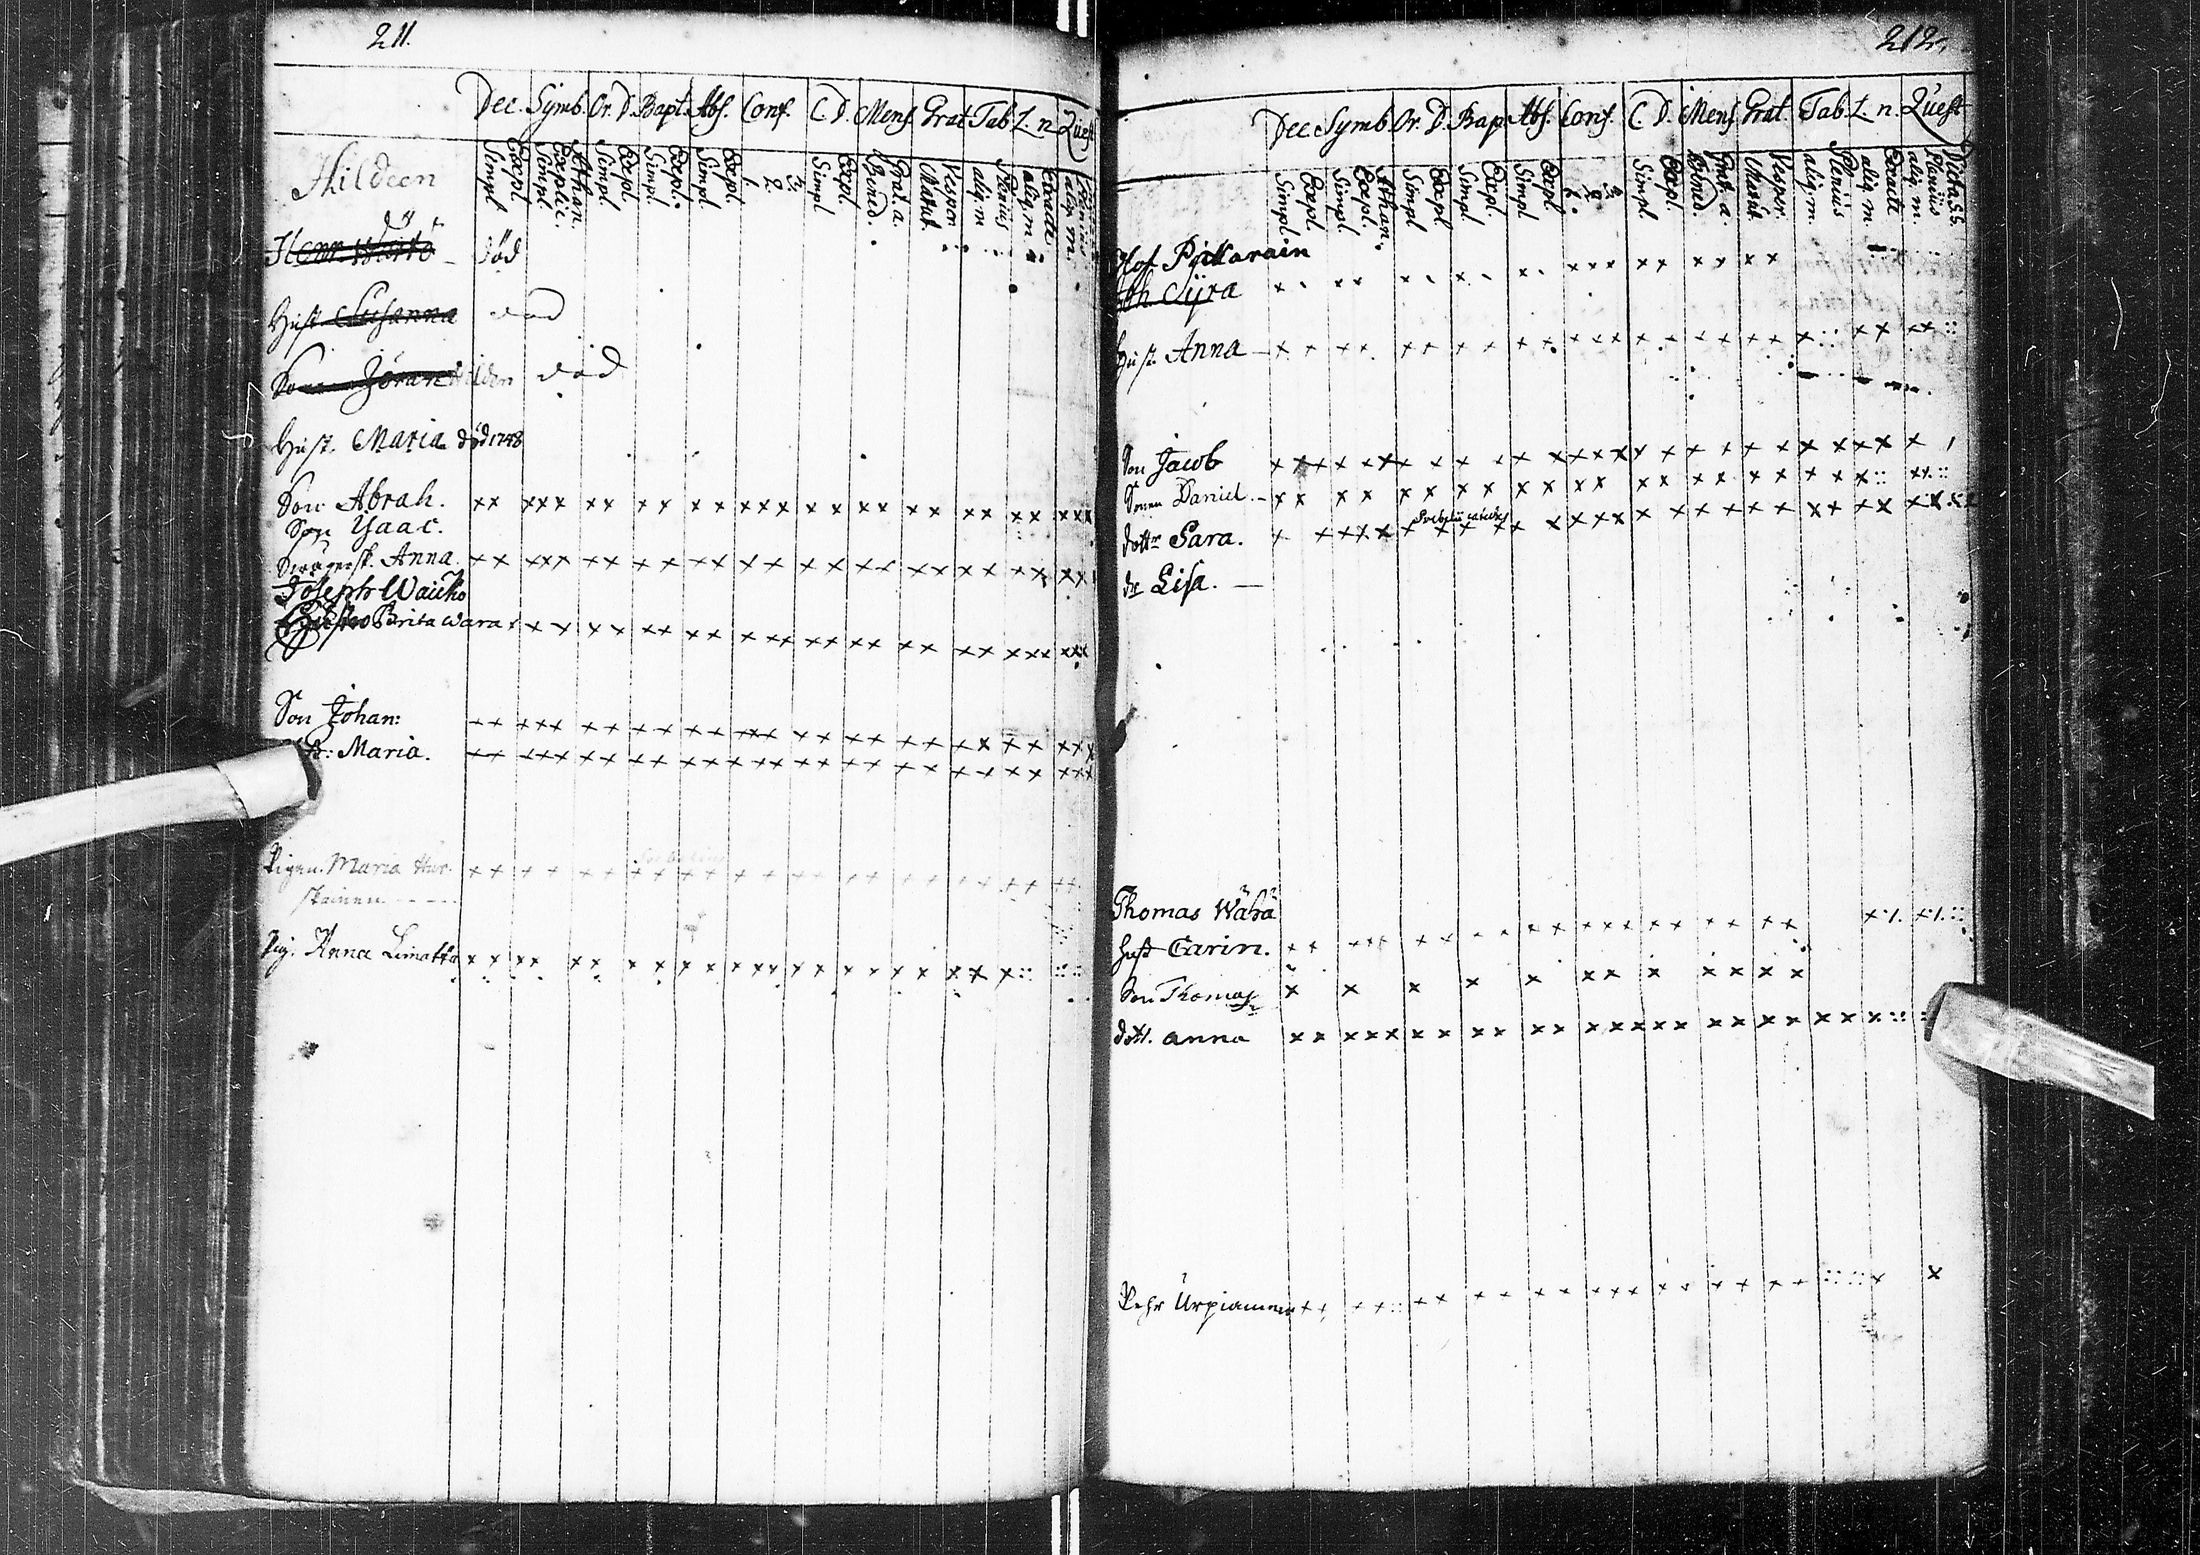 211.
Dec. Symb. Or. D. Bapt. Abs. Conf. C. D. Mens. Grat. Tab. L. n. Quest
Simpl. Expl. Simpl. Explic. Athan. Simpl. Expl. Simpl. Expl. Simpl. Expl. 1. 2 3. Simpl. Expl. Bened. Grat. a. Matut. Vesper aliq. m Plenius aliq. m Exacte aliq. m
Hildeen
död
Henr. död
Hust. Susanna död
Son Jöran Hilden död
Hust. Maria död 1748
Son Abrah.
Son Ysaac.
Anna
Joseph Waicko
Hustro Brita Wara
Son Johan:
Maria.
Pigan. Maria
Pig. Anna Limatta
212.
Dec. Symb. Or. D. Bap. Abs. Conf. C. D. Mens. Grat. Tab. L. n. Quest
Simpl. Expl. Simpl. Expl. Athan. Simpl Expl Simpl. Expl. Simpl. Expl. 1. 2. 3. Simpl. Expl. Bened. Grat. a. Matut. Vesper. aliq. m. Plenius aliq. m. Exacte aliq. m. Plenius Dicta SS.
Olof
Syra
Hust. Anna
Son Jacob
Sonen Daniel.
dottr Sara.
dr Lisa.
Thomas Wärä
Hust Carin.
Son Thomas
dott. anna
Pehr Urpiainen